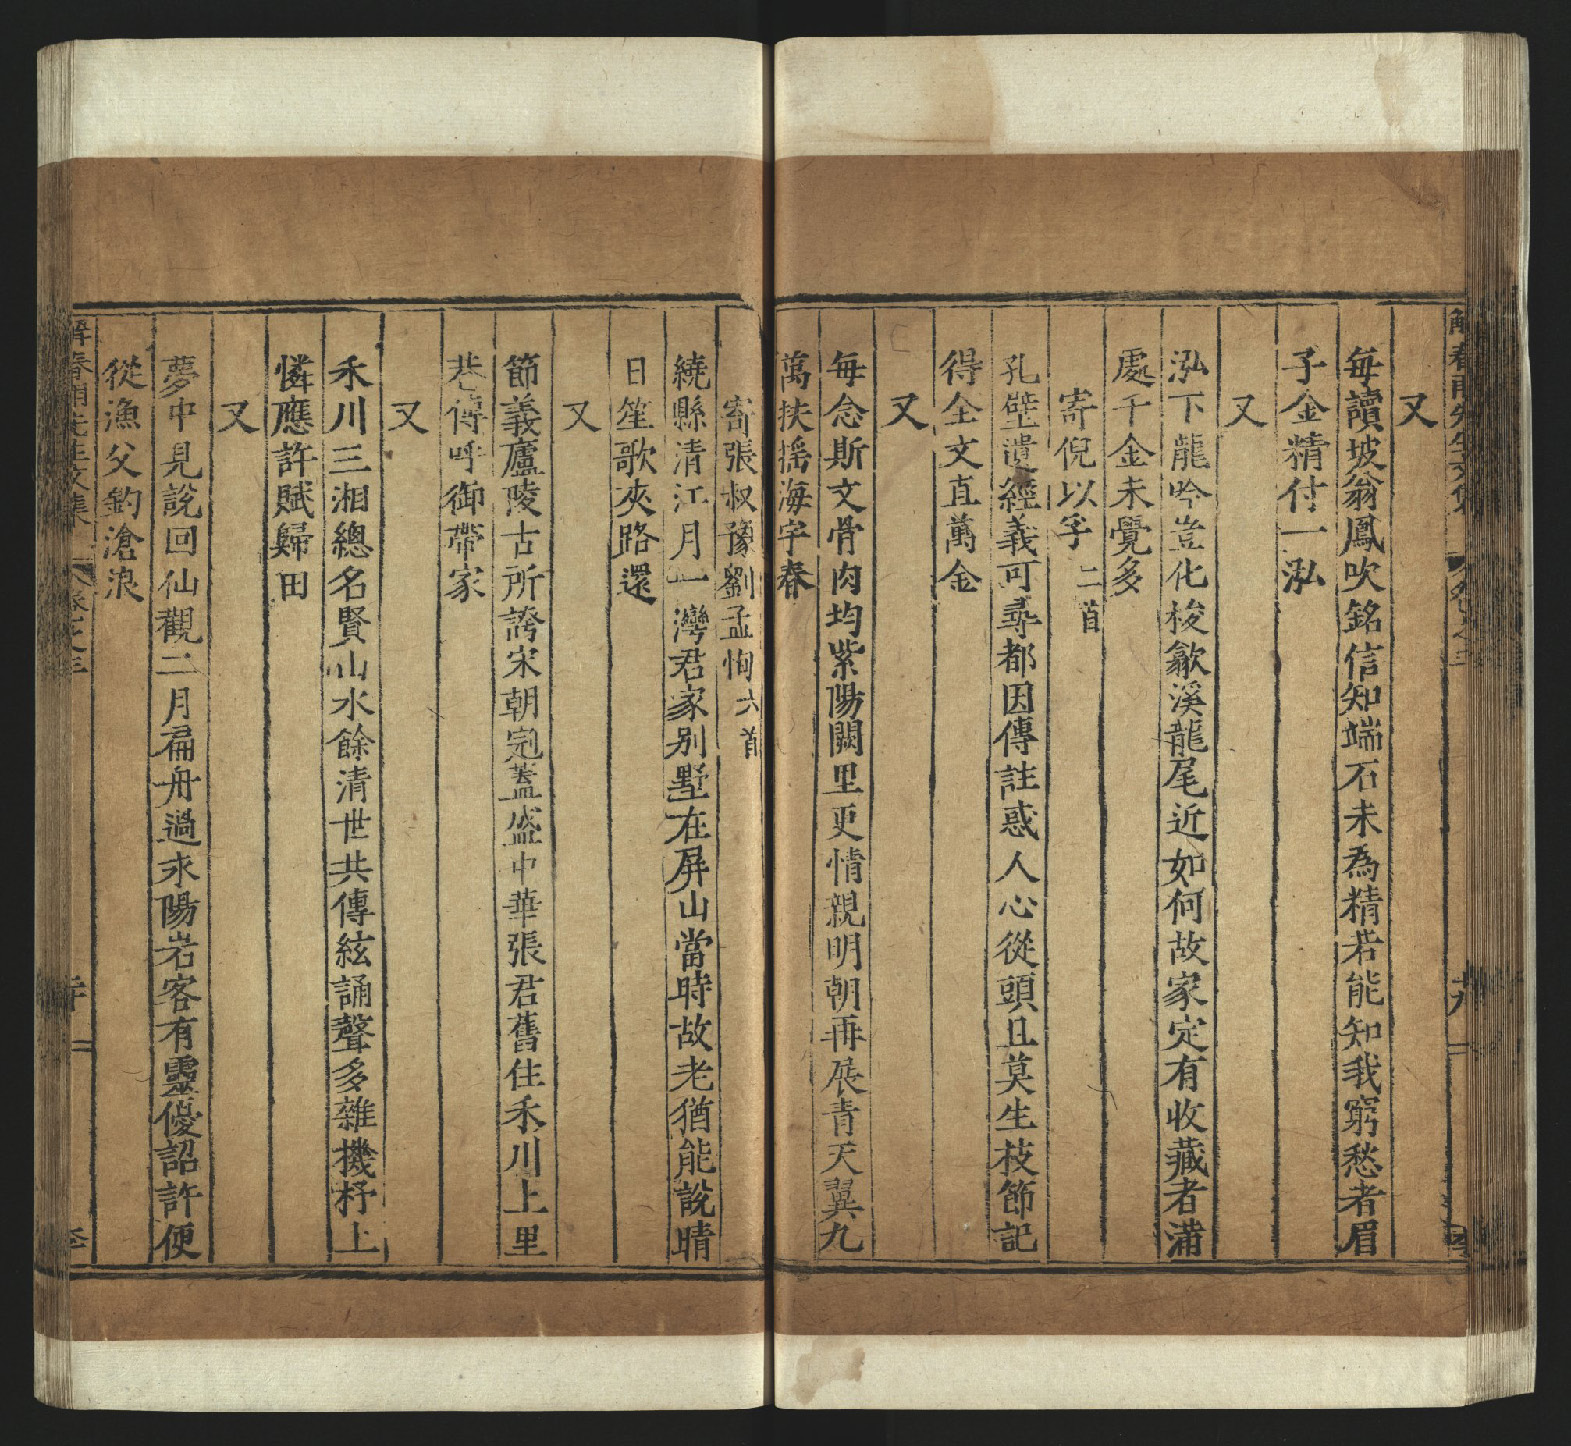 又
每讀坡翁鳳吹銘信知端石未為精若能知我窮愁者眉
子金精付一泓
又
泓下龍吟豈化梭歙溪龍尾近如何故家定有收藏者滿
處千金未覺多
寄倪以孚二首
孔壁遺經義可尋都因傳註惑人心從頭且莫生枝節記
得全文直萬金
又
每念斯文骨肉均紫陽闕里更情親明朝再展青天翼九
萬扶搖海宇春
寄張叔豫劉孟恂六首
繞縣清江月一灣君家別墅在屏山當時故老猶能說晴
日笙歌夾路還
又
節義廬陵古所誇宋朝冠蓋盛中華張君舊住禾川上里
巷傳呼御帶家
又
禾川三湘總名賢山水餘清世共傳絃誦聲多雜機杼上
憐應許賦歸田
又
夢中見說回仙觀二月扁舟過永陽岩客有靈優詔許便
從漁父釣滄浪
解春雨先生文集 卷之三